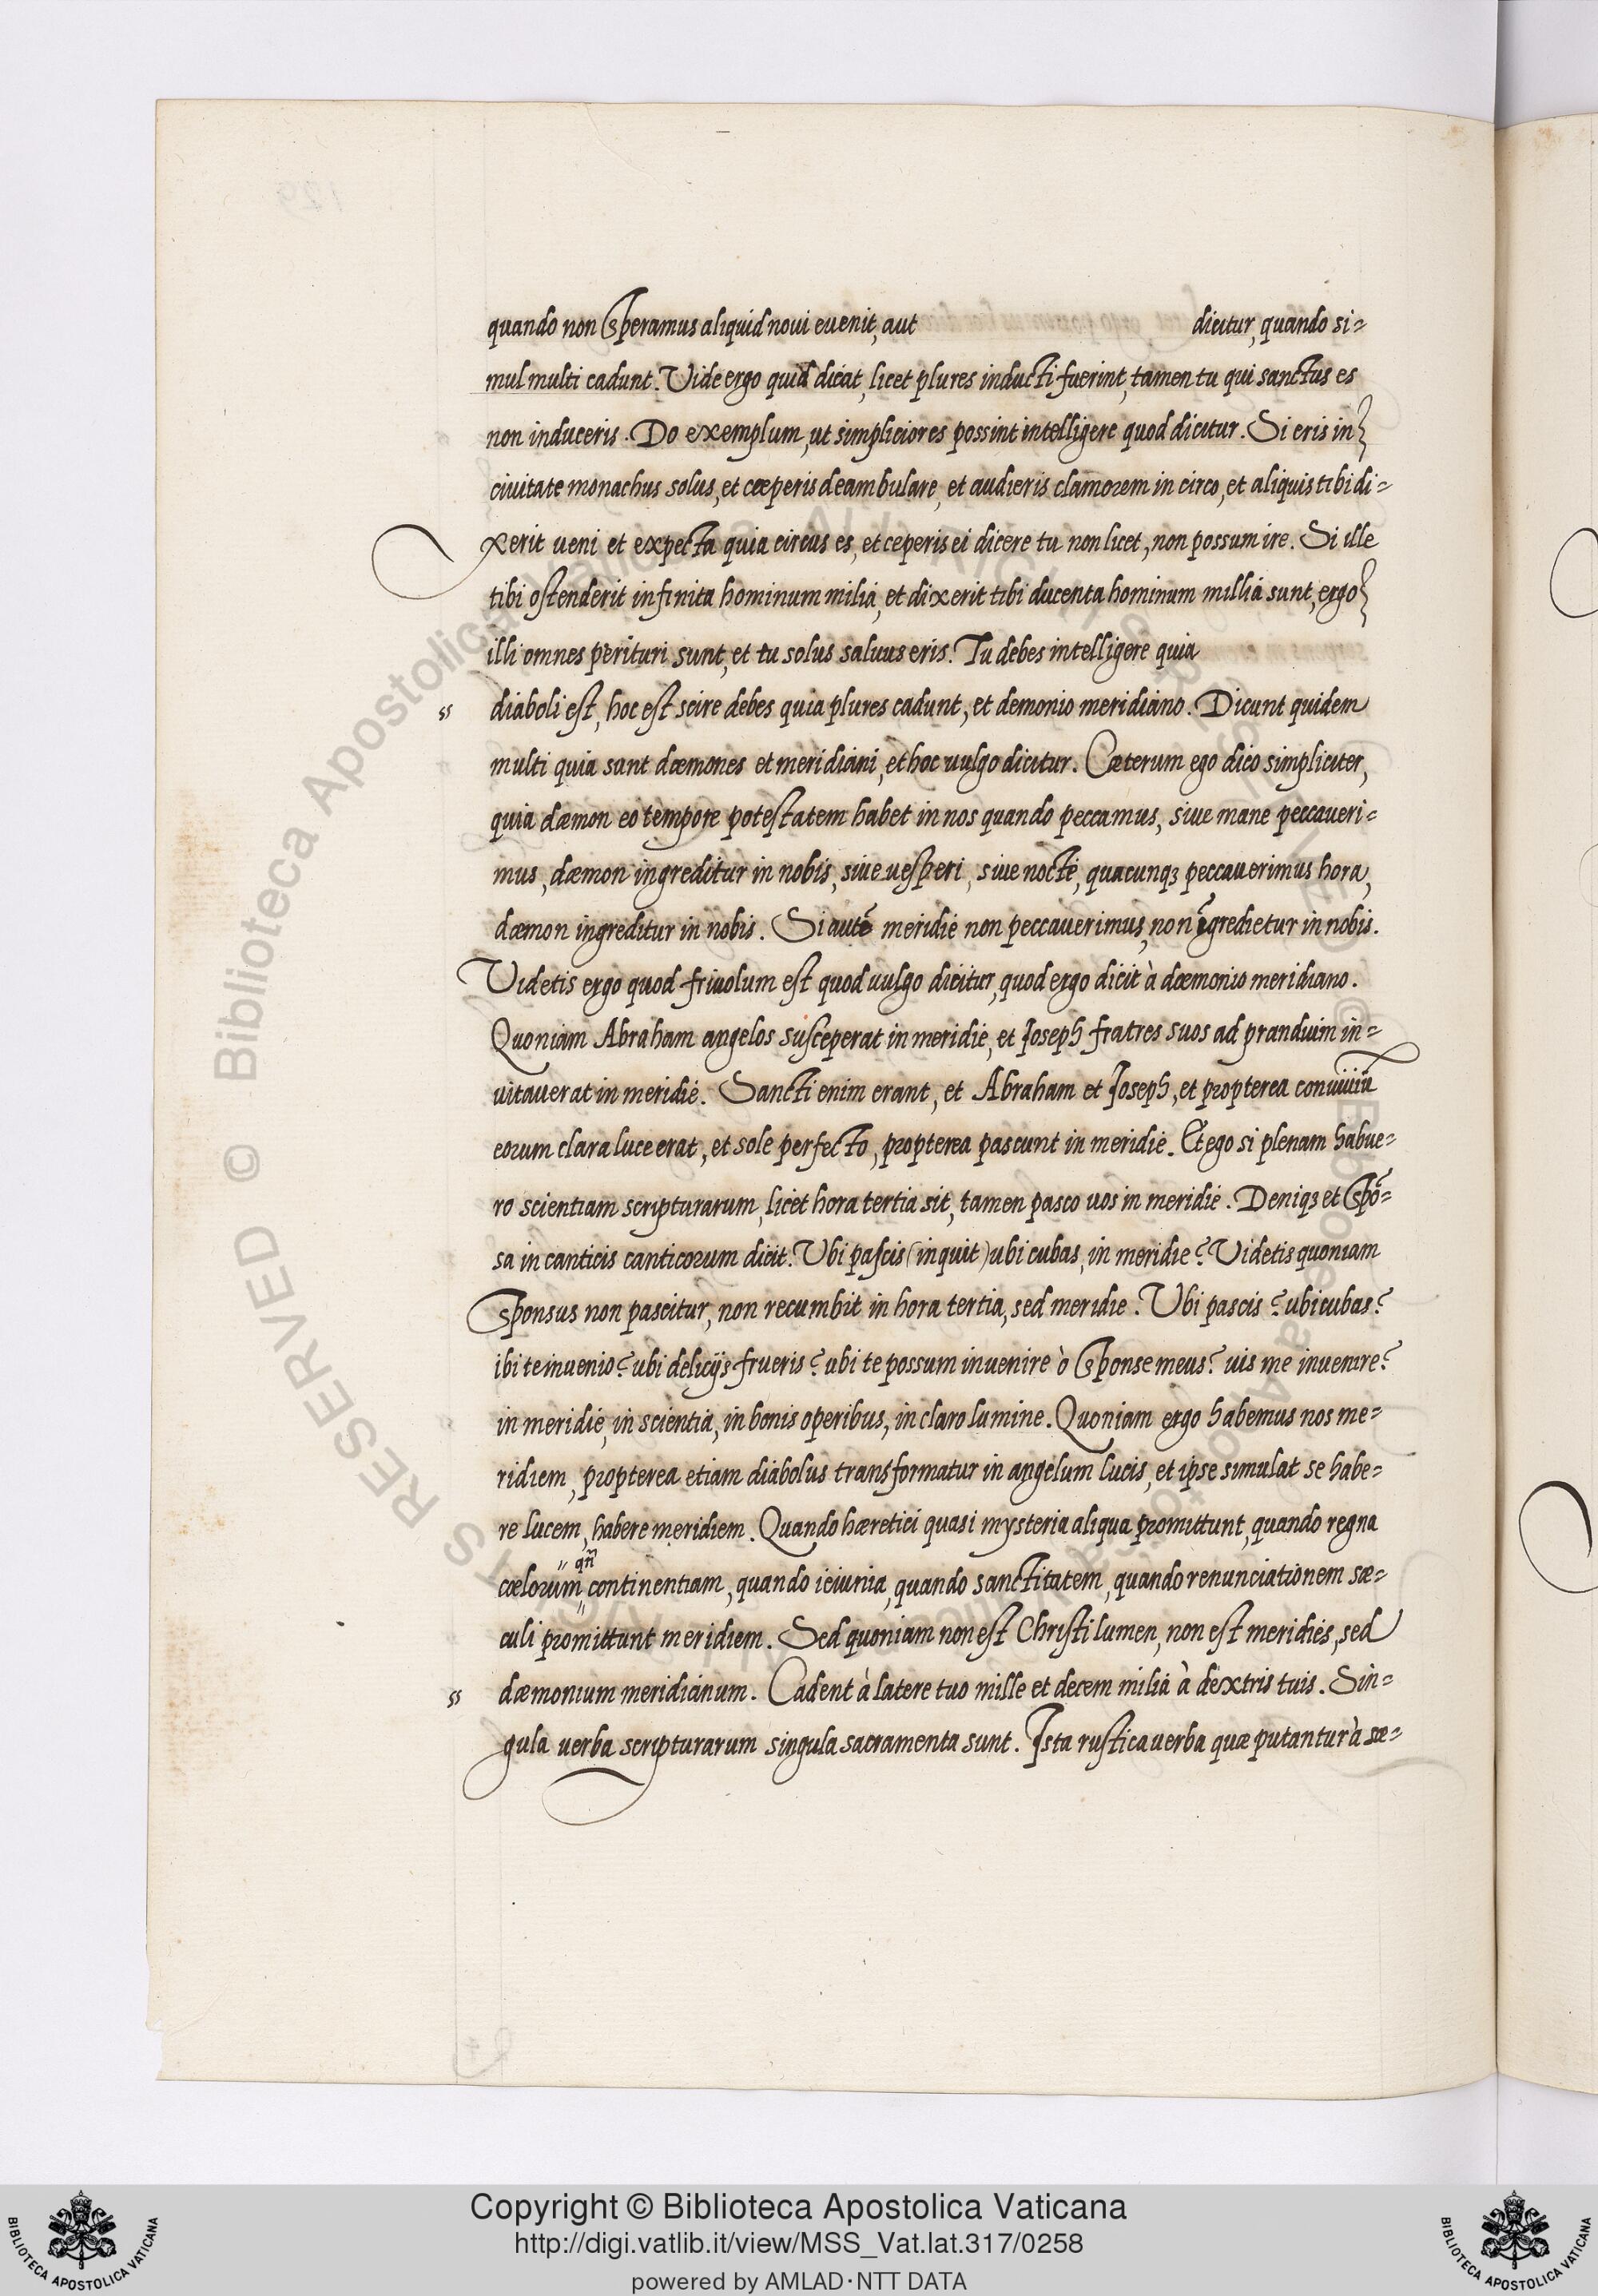 quando non speramus aliquid noui euenit, aut dicitur, quando si=
mul multi cadunt. Uide ergo quid dicat, licet plures inducti fuerint, tamen tu qui sanctus es
non induceris. Do exemplum, ut simpliciores possint intelligere quod dicitur. Si eris in
ciuitate monachus solus, et cœperis deambulare, et audieris clamorem in circo, et aliquis tibi di=
xerit ueni et expecta quia circus es, et ceperis ei dicere tu non licet, non possum ire. Si ille
tibi ostenderit infinita hominum milia, et dixerit tibi ducenta hominum millia sunt, ergo
illi omnes perituri sunt, et tu solus saluus eris. Tu debes intelligere quia
ss diaboli est, hoc est scire debes quia plures cadunt, et demonio meridiano. Dicunt quidem
multi quia sunt dæmones et meridiani, et hoc uulgo dicitur. Cæterum ego dico simpliciter,
quia dæmon eo tempore potestatem habet in nos quando peccamus, siue mane peccaueri=
mus, dæmon ingreditur in nobis, siue uesperi, siue nocte, quacunqꝫ peccauerimus hora,
dæmon ingreditur in nobis. Si autẽ meridie non peccauerimus, non ĩgredietur in nobis.
Uidetis ergo quod friuolum est quod uulgo dicitur, quod ergo dicit à dæmonio meridiano.
Quoniam Abraham angelos susceperat in meridie, et Joseph fratres suos ad prandium in=
uitauerat in meridie. Sancti enim erant, et Abraham et Joseph, et propterea conuiuiũ
eorum clara luce erat, et sole perfecto, propterea pascunt in meridie. Et ego si plenam habue=
ro scientiam scripturarum, licet hora tertia sit, tamen pasco uos in meridie. Deniqꝫ et spõ=
sa in canticis canticorum dicit. Ubi pascis (inquit) ubi cubas, in meridie? Uidetis quoniam
sponsus non pascitur, non recumbit in hora tertia, sed meridie. Ubi pascis? ubi cubas?
ibi te inuenio? ubi delicijs frueris? ubi te possum inuenire ò sponse meus? uis me inuenire?
in meridie, in scientia, in bonis operibus, in claro lumine. Quoniam ergo habemus nos me=
ridiem, propterea etiam diabolus transformatur in angelum lucis, et ipse simulat se habe=
re lucem, habere meridiem. Quando hæretici quasi mysteria aliqua promittunt, quando regna
qñ
cœlorum, continentiam, quando ieiunia, quando sanctitatem, quando renunciationem sæ=
culi promittunt meridiem. Sed quoniam non est Christi lumen, non est meridies, sed
ss dæmonium meridianum. Cadent à latere tuo mille et decem milia à dextris tuis. Sin=
gula uerba scripturarum singula sacramenta sunt. Ista rustica uerba quæ putantur à sæ=
© Biblioteca Apostolica Vaticana ALL RIGHTS RESERVED
Copyright © Biblioteca Apostolica Vaticana
http://digi.vatlib.it/view/MSS_Vat.lat.317/0258
powered by AMLAD·NTT DATA
BIBLIOTECA APOSTOLICA VATICANA
BIBLIOTECA APOSTOLICA VATICANA